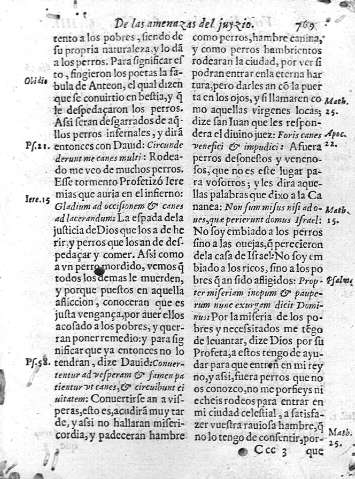 De las amenazas del juyzio. 769
tento a los pobres, siendo de
su propria naturaleza, y lo dà
a los perros. Para significar es
to, fingieron los poetas la fa-
Obidio
bula de Anteon, el qual dizen
que se conuirtio en bestia, y q̃
le despedaçaron los perros.
Assi seran desgarrados de aq̃
llos perros infernales, y dirà
entonces con Dauid: Circunde
Ps. 21.
derunt me canes multi: Rodea-
do me veo de muchos perros.
Esse tormento Profetizò Iere
mias que auria en el infierno:
Iere. 15
Gladium ad occisionem & canes
ad lacerandum: La espada de la
justicia de Dios que los a de he
rir, y perros que los an de des-
pedaçar y comer. Assi como
a vn perro mordido, vemos q̃
todos los demas le muerden,
y porque puestos en aquella
afliccion, conoceran que es
justa vengança, por auer ellos
acosado a los pobres, y que-
ran poner remedio; y para sig
nificar que ya entonces no lo
Ps. 58.
tendran, dize Dauid: Conuer-
tentur ad vesperam & famem pa
tientur vt canes, & circuibunt ci
uitatem: Conuertirse an a vis-
peras, esto es, acudirà muy tar
de, y assi no hallaran miseri-
cordia, y padeceran hambre
como perros, hambre canina,
y como perros hambrientos
rodearan la ciudad, por ver si
podran entrar en la eterna har
tura, pero darles an cõ la puer
ta en los ojos, y si llamaren co
Math. 25.
mo aquellas virgenes locas,
dize san Iuan que les respon-
dera el diuino juez: Foris canes
Apoc. 22.
venefici & impudici: Afuera
perros desonestos y veneno-
sos, que no es este lugar pa-
ra vosotros; y les dira aque-
llas palabras que dixo a la Ca
nanea: Non sum missus nisi ad o-
Math. 15.
ues, quæ perierunt domus Israel:
No soy embiado a los perros
sino a las ouejas, q̃ perecieron
de la casa de Israel: No soy em
biado a los ricos, sino a los po
bres q̃ an sido afligidos: Prop-
Psalm
ter miseriam inopum & paupe-
rum nunc exurgam dicit Domi-
nus: Por la miseria de los po-
bres y necessitados me tẽgo
de leuantar, dize Dios por su
Profeta, a estos tengo de ayu-
dar para que entren en mi rey
no, y assi, fuera perros que no
os conozco, no me porfieys ni
echeis rodeos para entrar en
mi ciudad celestial, a satisfa-
zer vuestra rauiosa hambre, q̃
no lo tengo de consentir, por-
Math. 25.
Ccc 3 que